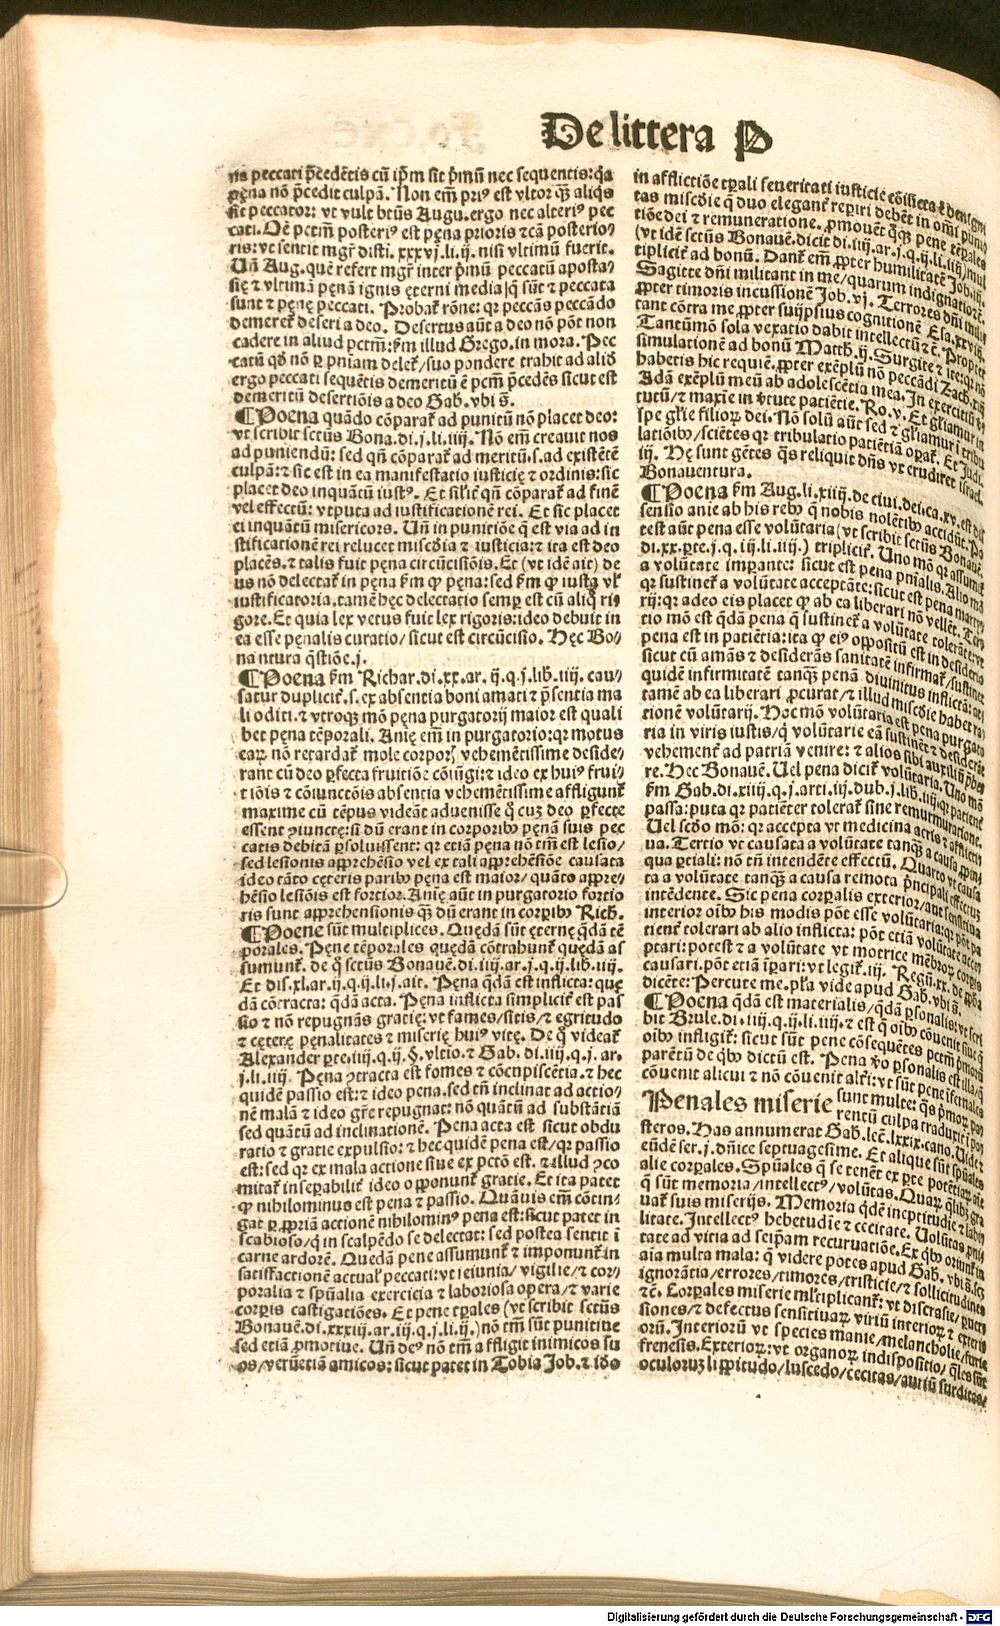 De littera P
na peccati p̄cedētis cū ip̄m sit p̄mū nec sequentis: q̄a
pęna nō p̄cedit culpā. Non em̄ priꝰ est vltor q̄ȝ aliq̄s
sit peccator: vt vult btūs Augu. ergo nec alteriꝰ pec
cati. Oē pctm̄ posteriꝰ est pęna prioris ⁊ cā posterio-
ris: vt sentit mgr̄ disti. xxxvj. li. ij. nisi vltimū fuerit.
Un̄ Aug. quē refert mgr̄ inter p̄mū peccatū aposta/
się ⁊ vltimā pęnā ignis ęterni media/q̄ sūt ⁊ peccata
sunt ⁊ pęnę peccati. Probat̄ rōne: qꝛ peccās peccādo
demeret̄ deseri a deo. Desertus aūt a deo nō pōt non
cadere in aliud pctm̄: ẜm illud Grego. in mora. Pec
catū qd̄ nō ꝑ pn̄iam delet̄/ suo pondere trahit ad aliđ
ergo peccati sequētis demeritū ē pcm̄ p̄cedēs sicut est
demeritū desertiōis a deo Gab. vbi s̄.
¶Poena quādo cōparat̄ ad punitū nō placet deo:
vt scribit sctūs Bona. di. j. li. iiij. Nō em̄ creauit nos
ad puniendū: sed qn̄ cōparat̄ ad meritū. s. ad existētē
culpā: ⁊ sic est in ea manifestatio iusticię ⁊ ordinis: sic
placet deo inquātū iustꝰ. Et sil̄ič qn̄ cōparat̄ ad finē
vel effectū: vtputa ad iustificationē rei. Et sic placet
ei inquātū misericors. Un̄ in punitiōe q̄ est via ad iu
stificationē rei relucet miscd̄ia ⁊ iusticia: ⁊ ita est deo
placēs. ⁊ talis fuit pęna circūcisiōis. Et (vt idē ait) de
us nō delectat̄ in pęna ẜm ꝙ pęna: sed ẜm ꝙ iusta vl̓
iustificatoria. tamē hęc delectatio semꝑ est cū aliq̊ ri/
gore. Et quia lex vetus fuit lex rigoris: ideo debuit in
ea esse pęnalis curatio/ sicut est circūcisio. Hęc Bo/
na ntura q̄stiōe. j.
¶Poena ẜm Richar. di. xx. ar. ij. q. j. lib. iiij. cau/
satur duplicit̄. s. ex absentia boni amati ⁊ p̄sentia ma
li oditi. ⁊ vtroqȝ mō pęna purgatorij maior est quali
bet pęna tēporali. Anię em̄ in purgatorio: qꝛ motus
eaꝝ nō retardat̄ mole corporꝭ vehemētissime deside/
rant cū deo ꝑfecta fruitiōe cōiūgi: ⁊ ideo ex huiꝰ frui/
tiōis ⁊ cōiunctōis absentia vehemētissime affligunt̄
maxime cū tēpus videāt aduenisse q̊ cuȝ deo ꝑfecte
essent ꝯiuncte: si dū erant in corporibꝰ pęnā suis pec
catis debitā ꝑsoluissent: qꝛ etiā pęna nō tm̄ est lesio/
sed lesionis apprehēsio vel ex tali apprehēsiōe causata
ideo tāto cęteris paribꝰ pęna est maior/ quāto appre/
hēsio lesiōis est fortior. Anię aūt in purgatorio fortio
ris sunt apprehensionis q̄ȝ dū erant in corꝑibꝰ Rich.
¶Poene sūt multiplices. Quędā sūt ęternę q̄dā tē
porales. Pęne tēporales quędā cōtrahunt̄ quędā as
sumunt̄. de q̊ sctūs Bonauē. di. iiij. ar. j. q. ij. lib. iiij.
Et dis. xl. ar. ij. q. ij. li. j. ait. Pęna q̄dā est inflicta: quę
dā cōtracta: q̄dā acta. Pęna inflicta simplicit̄ est pas
sio ⁊ nō repugnās gratię: vt fames/ sitis/ ⁊ egritudo
⁊ cęterę penalitates ⁊ miserię huiꝰ vitę. De q̊ videat̄
Alexander ꝑte. iiij. q. ij. §. vltio. ⁊ Gab. di. iiij. q. j. ar.
j. li. iiij. Pęna ꝯtracta est fomes ⁊ cōcupiscētia. ⁊ hec
quidē passio est: ⁊ ideo pena. sed tn̄ inclinat ad actio/
nē malā ⁊ ideo gr̄e repugnat: nō quātū ad substātiā
sed quātū ad inclinationē. Pena acta est sicut obdu
ratio ⁊ gratie expulsio: ⁊ hec quidē pena est/ qꝛ passio
est: sed qꝛ ex mala actione siue ex pctō est. ⁊ illud ꝯco
mitat̄ inseꝑabilit̄ ideo opponunt̄ gratie. Et ita patet
ꝙ nihilominus est pena ⁊ passio. Quāuis em̄ cōtin/
gat ꝑ propriā actionē nihilominꝰ pena est: sicut patet in
scabioso/ q̄ in scalpēdo se delectat: sed postea sentit ī
carne ardorē. Quedā pene assumunt̄ ⁊ imponunt̄ in
satisfactionē actual̓ peccati: vt ieiunia/ vigilie/ ⁊ cor/
poralia ⁊ spūalia exercicia ⁊ laboriosa opera/ ⁊ varie
corꝑis castigatiōes. Et pene tꝑales (vt scribit sctūs
Bonauē. di. xxxiij. ar. iij. q. j. li. ij.) nō tm̄ sūt punitiue
sed etiā ꝓmotiue. Un̄ deꝰ nō tm̄ affligit inimicos su
os/ verūetiā amicos: sicut patet in Tobia Job. ⁊ iđo
in afflictiōe tꝑali seueritati iusticie
tas miscd̄ie q̄ duo elegant̄ reꝑiri debēt in om̄i
tiōe dei ⁊ remuneratione. ꝓmouēt q̊qȝ pene tēꝑales
(vt idē sctūs Bonauē. dicit di. iiij. ar. j. q. ij. li. iiij.) mul
tiplicit̄ ad bonū. Dant̄ em̄ ꝓpter humilitatē Job. iij.
Sagitte dn̄i militant in me/ quarum indignatio
ꝓpter timoris incussionē Job. vj. Terrores dn̄i mili
tant cōtra me ꝓpter suiipsius cognitionē Esa. xxviij.
Tantūmō sola vexatio dabit intellectū ⁊ c̄. Propter
simulationē ad bonū Matth. ij. Surgite ⁊ ite: qꝛ nō
habetis hic requiē. ꝓpter exēplū nō peccādi Zach. xiij
Adā exēplū meū ab adolescētia mea. In exercitiū
tutū/ ⁊ maxīe in v̓tute patiētie. Ro. v. Et gl̓iamur in
spe gl̓ie filioꝝ dei. Nō solū aūt sed ⁊ gl̓iamur ī tribu
latiōibꝰ/ sciētes qꝛ tribulatio patiētiā opat̄. Et Judi.
iij. Hę sunt gētes q̄s reliquit dn̄s vt erudiret israel.
Bonauentura.
¶Poena ẜm Aug. li. xiiij. de ciui. dei. ca. xv. est
sensio anie ab his rebꝰ q̄ nobis nolētibꝰ accidūt. Po
test aūt pena esse volūtaria (vt scribit sctūs Bonauē.
di. xx. ꝑte. j. q. iij. li. iiij.) triplicit̄. Uno mō qꝛ assumit̄
a volūtate imꝑante: sicut est pena pn̄ialis. Alio mō
qꝛ sustinet̄ a volūtate acceptāte: sicut est pena marty
rij: qꝛ adeo eis placet ꝙ ab ea liberari nō vellēt. Ter
tio mō est q̄dā pena q̄ sustinet̄ a volūtate tolerāte: vt
pena est in patiētia: ita ꝙ eiꝰ oppositū est in desiderio
sicut cū amās ⁊ desiderās sanitatē infirmat̄/ sustinet
quidē infirmitatē tanq̄ȝ penā diuinitus inflictā:
tamē ab ea liberari ꝓcurat/ ⁊ illud miscd̄ie habet ra
tionē volūtarij. Hoc mō volūtaria est pena purgato
ria in viris iustis/ q̄ volūtarie eā sustinēt ⁊ desiderāt
vehement̄ ad patriā venire: ⁊ alios sibi auxiliū p̄be
re. Hec Bonauē. Uel pena dicit̄ volūtaria. Uno mō
ẜm Gab. di. xiiij. q. j. arti. iij. dub. j. lib. iiij. qꝛ patient̄
passa: puta qꝛ patiēter tolerat̄ sine remurmuratione.
Uel scd̄o mō: qꝛ accepta vt medicina actis ⁊ afflicti
ua. Tertio vt causata a volūtate tanq̄ȝ a causa
qua ꝑtiali: nō tn̄ intendēte effectū. Quarto vt causa
ta a volūtate tanq̄ȝ a causa remota p̄ncipali effectus
intēdente. Sic pena corꝑalis exterior/ aut sensitiua
interior oībꝰ his modis pōt esse volūtaria: qꝛ pōt pa
tient̄ tolerari ab alio inflicta: pōt etiā volūtate acce
ptari: potest ⁊ a volūtate vt motrice mēbroꝝ corꝑis
causari. pōt etiā īꝑari: vt legit̄. iij. Regū. xx. de ꝓpha
dicēte: Percute me. pl̓a vide apud Gab. vbi s̄.
¶Poena q̄dā est materialis/ q̄dā ꝑsonalis: vt scri
bit Brule. di. iiij. q. ij. li. iiij. ⁊ est q̄ oībꝰ cōuenit siue q̄
oībꝰ infligit̄: sicut sūt pene cōsequētes pctm̄ p̄moꝝ
parētū de q̊bꝰ dictū est. Pena v̓o ꝑsonalis est illa/ q̄
cōuenit alicui ⁊ nō cōuenit alt̓i: vt sūt pene īfernales
Penales miserie sunt multe: q̄s p̄moꝝ pa
rentū culpa traduxit ī po
steros. Has annumerat Gab. lec̄. lxxix. cano. Uide ⁊
eūdē ser. j. dn̄ice septuagesime. Et aliqȝ sūt spūales
alie corꝑales. Spūales q̄ se tenēt ex ꝑte potētiaꝝ aīe
q̄ sūt memoria/ intellectꝰ/ volūtas. Quaꝝ q̄libȝ gra
uat̄ suis miserijs. Memoria q̄dē ineptitudīe ⁊ labi
litate. Intellectꝰ hebetudīe ⁊ cecitate. Volūtas
tate ad vitia ad seip̄am recuruatiōe. Ex q̊bꝰ oriunt̄ in
aīa multa mala: q̄ videre potes apud Gab. vbi s̄.
ignorātia/ errores/ timores/ tristicie/ ⁊ sollicitudines
⁊ c̄. Corꝑales miserie ml̓tiplicant̄: vt discrasie/
siones/ ⁊ defectus sensitiuaꝝ virtū interioꝝ ⁊ exteri
orū. Interiorū vt species manie/ melancholie/ furie
frenesis. Exterioꝝ: vt organoꝝ indispositio/ q̄les sūt
oculoruȝ lippitudo/ luscedo/ cecitas/ auriū surditas/
Digitalisierung gefördert durch die Deutsche Forschungsgemeinschaft - DFG